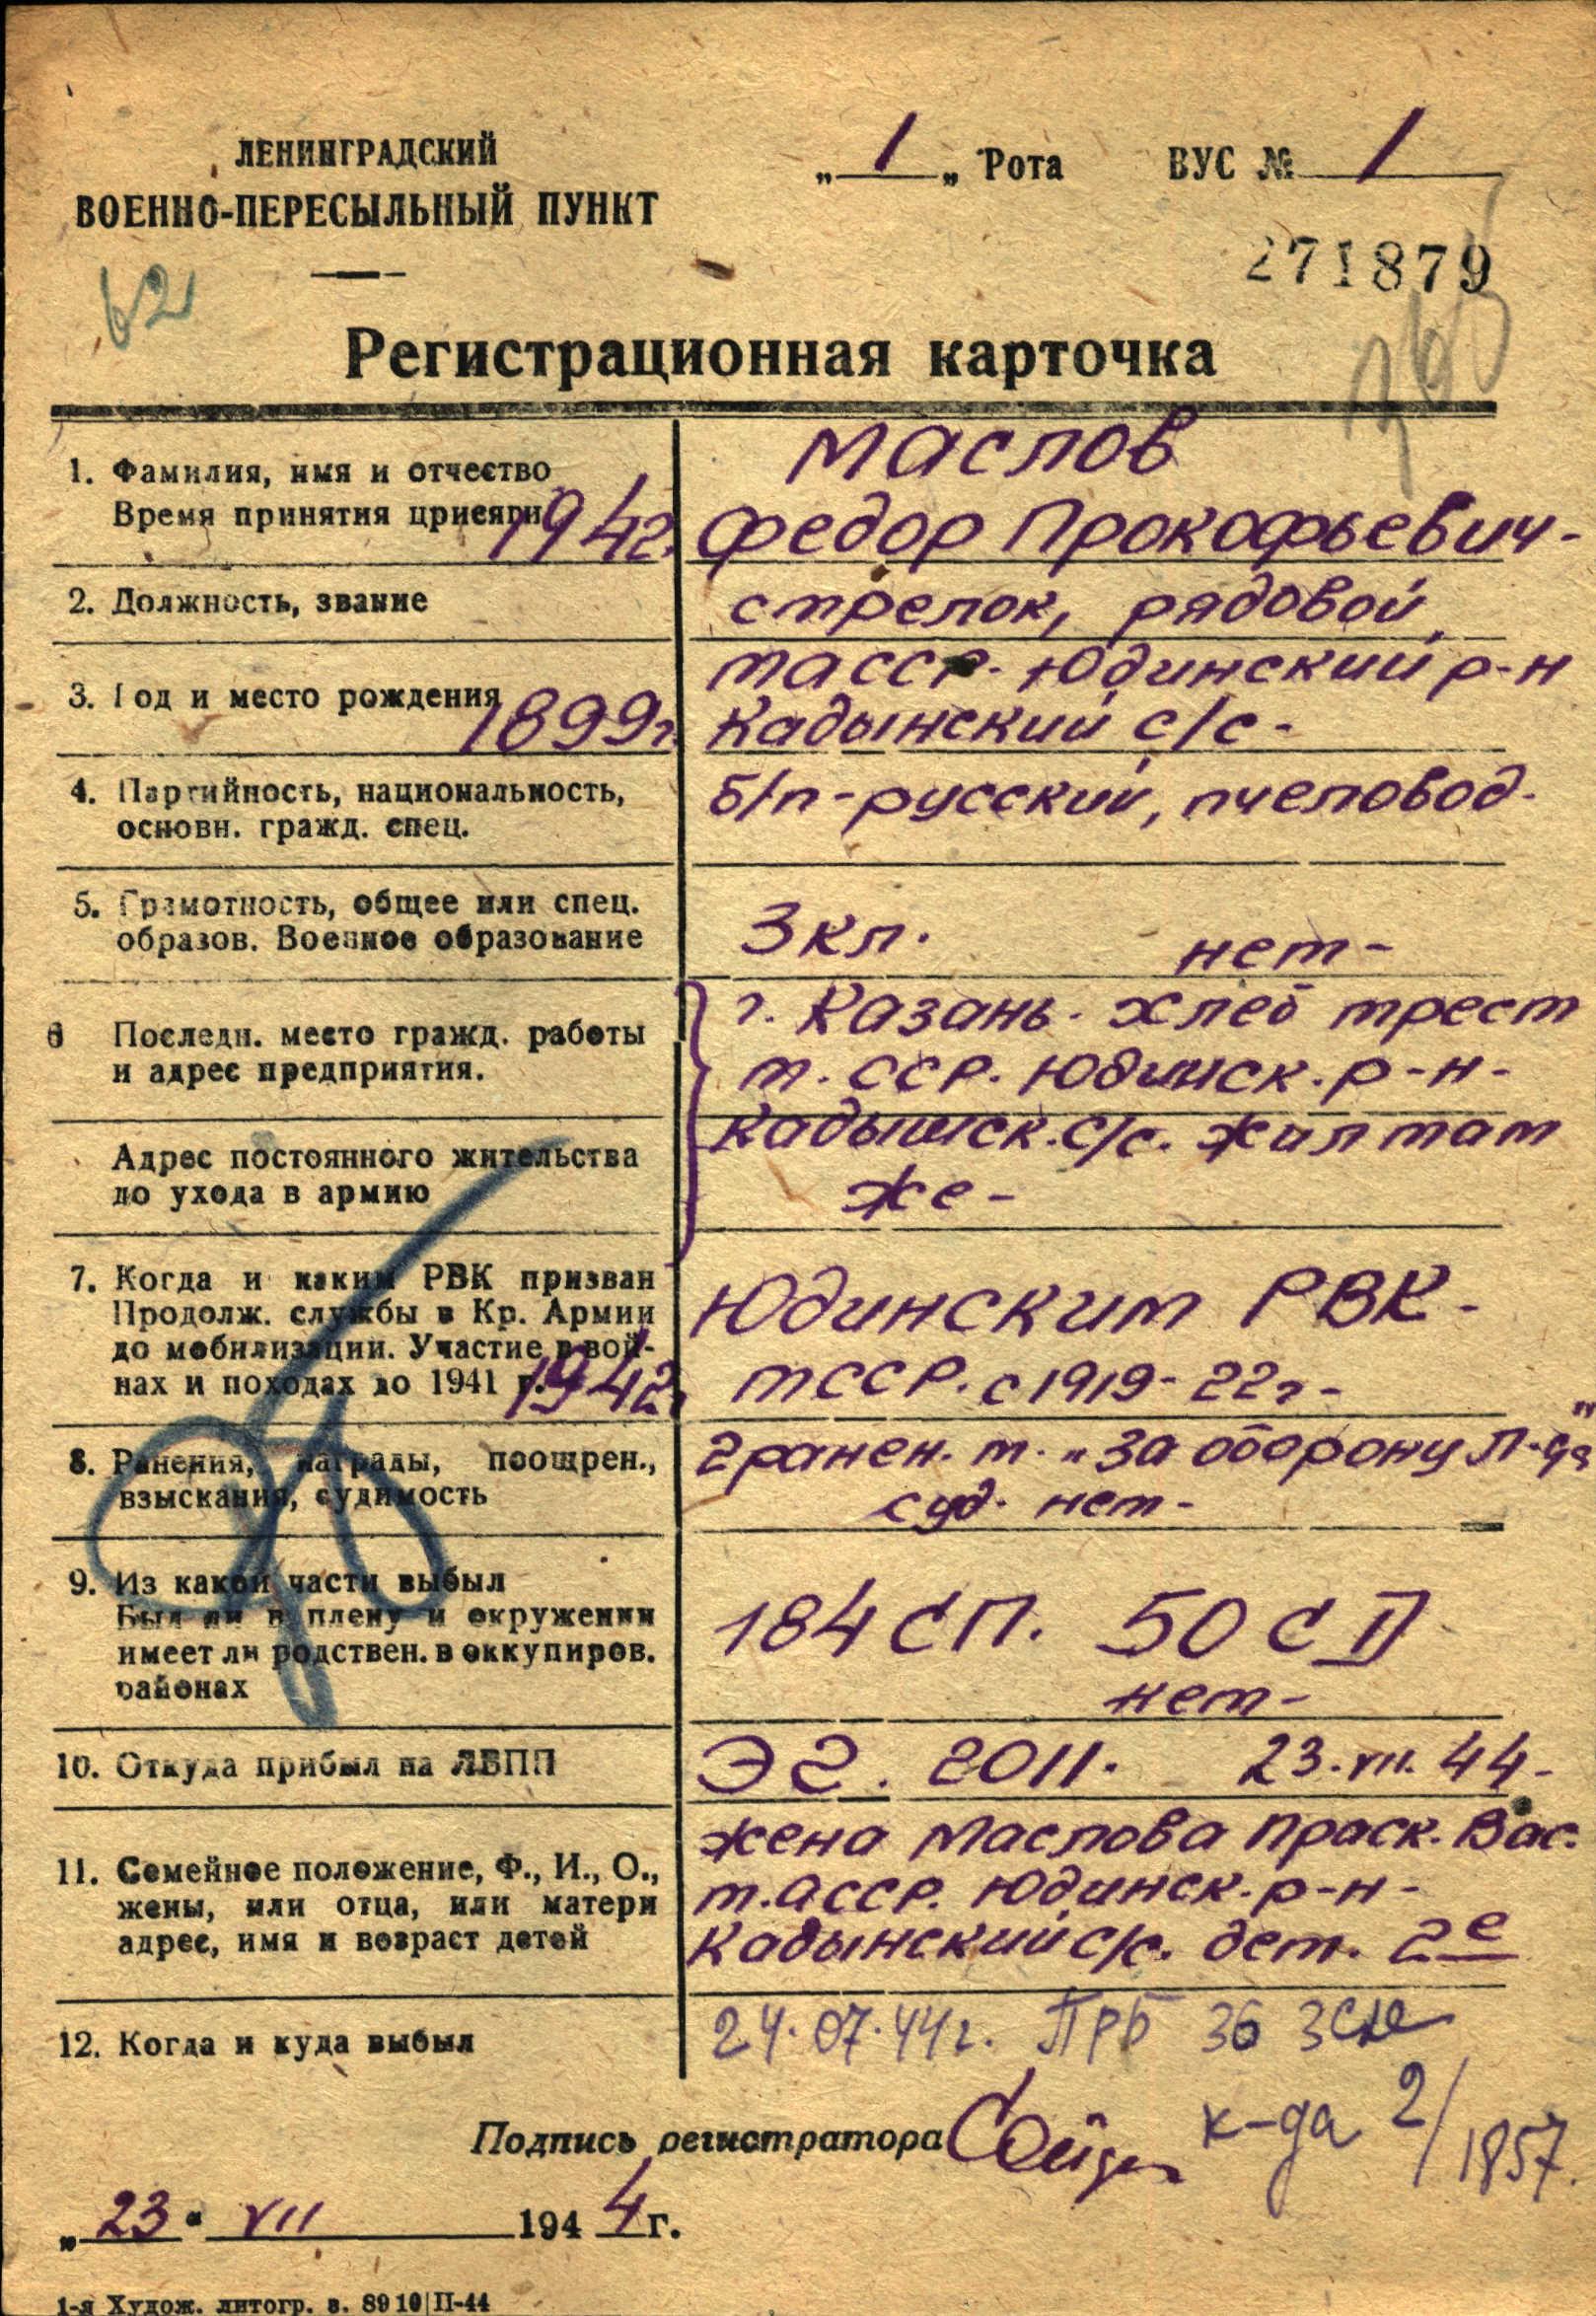 ЛЕНИНГРАДСКИЙ
ВОЕННО-ПЕРЕСЫЛЬНЫЙ ПУНКТ
„ 1 „ Рота ВУС № 1
271879
62
Регистрационная карточка
1. Фамилия, имя и отчество
Время принятия присяги 1942г.
Маслов
Федор Прокофьевич-
2. Должность, звание
стрелок, рядовой
3. Год и место рождения 1899г
тасср. Юдинский р-н
Кадынский с/с-
4. Партийность, национальность,
основн. гражд. спец.
б/п-русский, пчеловод.
5. Грамотность, общее или спец.
образов. Военное образование
3кл. нет-
6 Последн. место гражд. работы
и адрес предприятия.
г. Казань. хлеб трест
т. сср. Юдинск. р-н-
Адрес постоянного жительства
до ухода в армию
Кадынск. с/с. жил там
же-
7. Когда и каким РВК призван
Продолж. службы в Кр. Армии
до мобилизации. Участие в вой-
нах и походах до 1941 г. 1942г
Юдинским РВК-
тССР. с 1919-22г-
8. Ранения, награды, поощрен.,
взыскания, судимость
2 ранен. т. „За оборону Л-да"
суд. нет-
9. Из какой части выбыл
Был ли в плену и окружении
имеет ли родствен. в оккупиров.
районах
184 СП. 50 СД
нет-
10. Откуда прибыл на ЛВПП
ЭГ. 2011. 23.VII.44-
11. Семейное положение, Ф., И., О.,
жены, или отца, или матери
адрес, имя и возраст детей
жена Маслова Праск. Вас.
т.асср. Юдинск. р-н-
Кадынский с/с. дет. 2е
12. Когда и куда выбыл
24.07.44г. ПРБ 36 зсд
к-да 2/1857.
Подпись регистратора
„ 23 " VII 1944 г.
1-я Худож. литогр. з. 8910|II-44